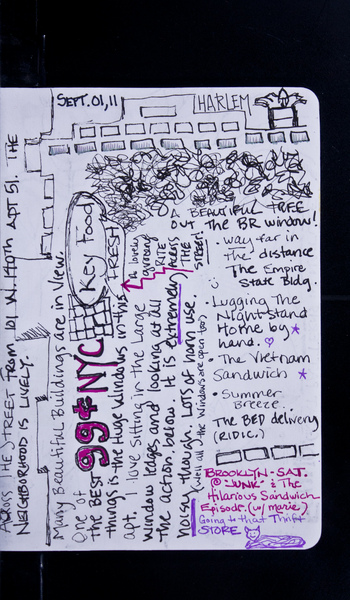 SEPT. 01, 11
HARLEM
A BEAUTIFUL TREE
OUT THE BR WINDOW!
• way far in
the distance
The Empire
State Bldg.
• Lugging The
Nightstand
Home by
hand.
• The Vietnam
Sandwich
• Summer
Breeze.
The BED delivery
(RIDIC.)
BROOKLYN - SAT.
@ "JUNK" & The
Hilarious Sandwich
Episode. (w/ marie)
Going to that Thrift
STORE
ACROSS THE STREET FROM 101 W. 140th APT 51. THE
NEIGHBORHOOD IS LIVELY.
Many Beautiful Buildings are in View.
Key Food
FRESH
99¢ NYC
A lovely
grocery
RITE
ACROSS
THE
STREET!
One of
the BEST
things is the Huge windows in this
apt. I love sitting in the Large
window ledges and looking at all
the action below. It is extremely
noisy though. LOTS of horn use.
(Well all of the windows are open too)